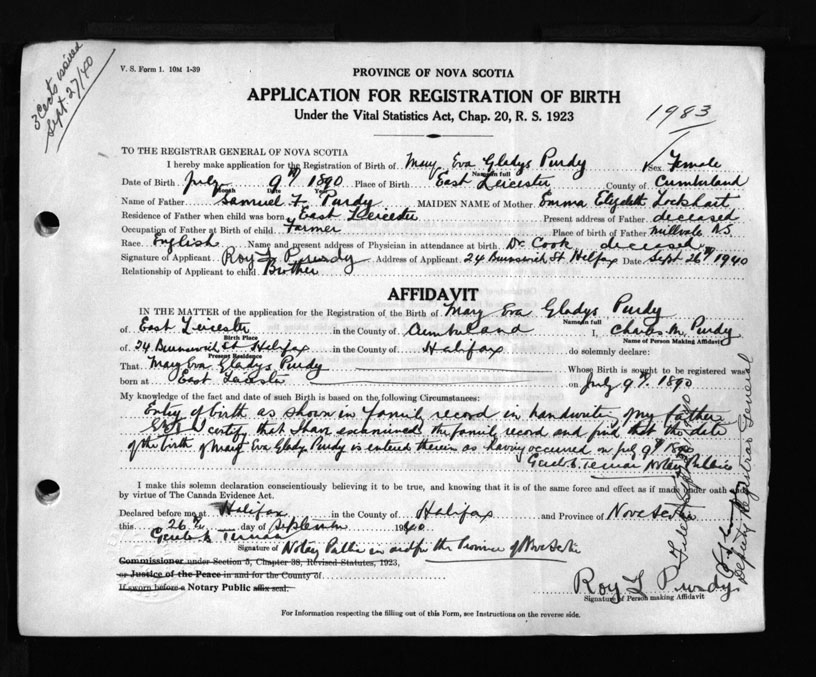 3 Certs issued
Sept. 27/40
V. S. Form 1. 10M 1-39
PROVINCE OF NOVA SCOTIA
APPLICATION FOR REGISTRATION OF BIRTH
Under the Vital Statistics Act, Chap. 20, R. S. 1923
1983
TO THE REGISTRAR GENERAL OF NOVA SCOTIA
I hereby make application for the Registration of Birth of Mary Eva Gladys Purdy Sex Female
Name in full
Date of Birth July 9th 1890 Place of Birth East Leicester County of Cumberland
Month Date Year
Name of Father Samuel F. Purdy MAIDEN NAME of Mother Emma Elizabeth Lockhart
Residence of Father when child was born East Leicester Present address of Father deceased
Occupation of Father at Birth of child Farmer Place of birth of Father Millvale NS
Race English Name and present address of Physician in attendance at birth Dr. Cook deceased
Signature of Applicant Roy L Purdy Address of Applicant 24 Brunswick St Halifax Date Sept 26th 1940
Relationship of Applicant to child Brother
AFFIDAVIT
IN THE MATTER of the application for the Registration of the Birth of Mary Eva Gladys Purdy
Name in full
of East Leicester in the County of Cumberland I, Charles M. Purdy
Birth Place Name of Person Making Affidavit
of 24 Brunswick St Halifax in the County of Halifax do solemnly declare:
Present Residence
That Mary Eva Gladys Purdy Whose Birth is sought to be registered was
born at East Leicester on July 9th 1890
My knowledge of the fact and date of such Birth is based on the following Circumstances:
Entry of birth as shown in family record in handwriting of my father
I certify that I have examined the family record and find that the date
of the birth of Mary Eva Gladys Purdy is entered therein as having occurred on July 9th 1890
Notary Public
I make this solemn declaration conscientiously believing it to be true, and knowing that it is of the same force and effect as if made under oath and
by virtue of The Canada Evidence Act.
Declared before me at Halifax in the County of Halifax and Province of Nova Scotia
this 26th day of September 1940
Signature of Notary Public in and for the Province of Nova Scotia
Commissioner under Section 5, Chapter 38, Revised Statutes, 1923,
or Justice of the Peace in and for the County of
If sworn before a Notary Public affix seal.
Roy L Purdy
Signature of Person making Affidavit
For Information respecting the filling out of this Form, see Instructions on the reverse side.
Deputy Registrar General